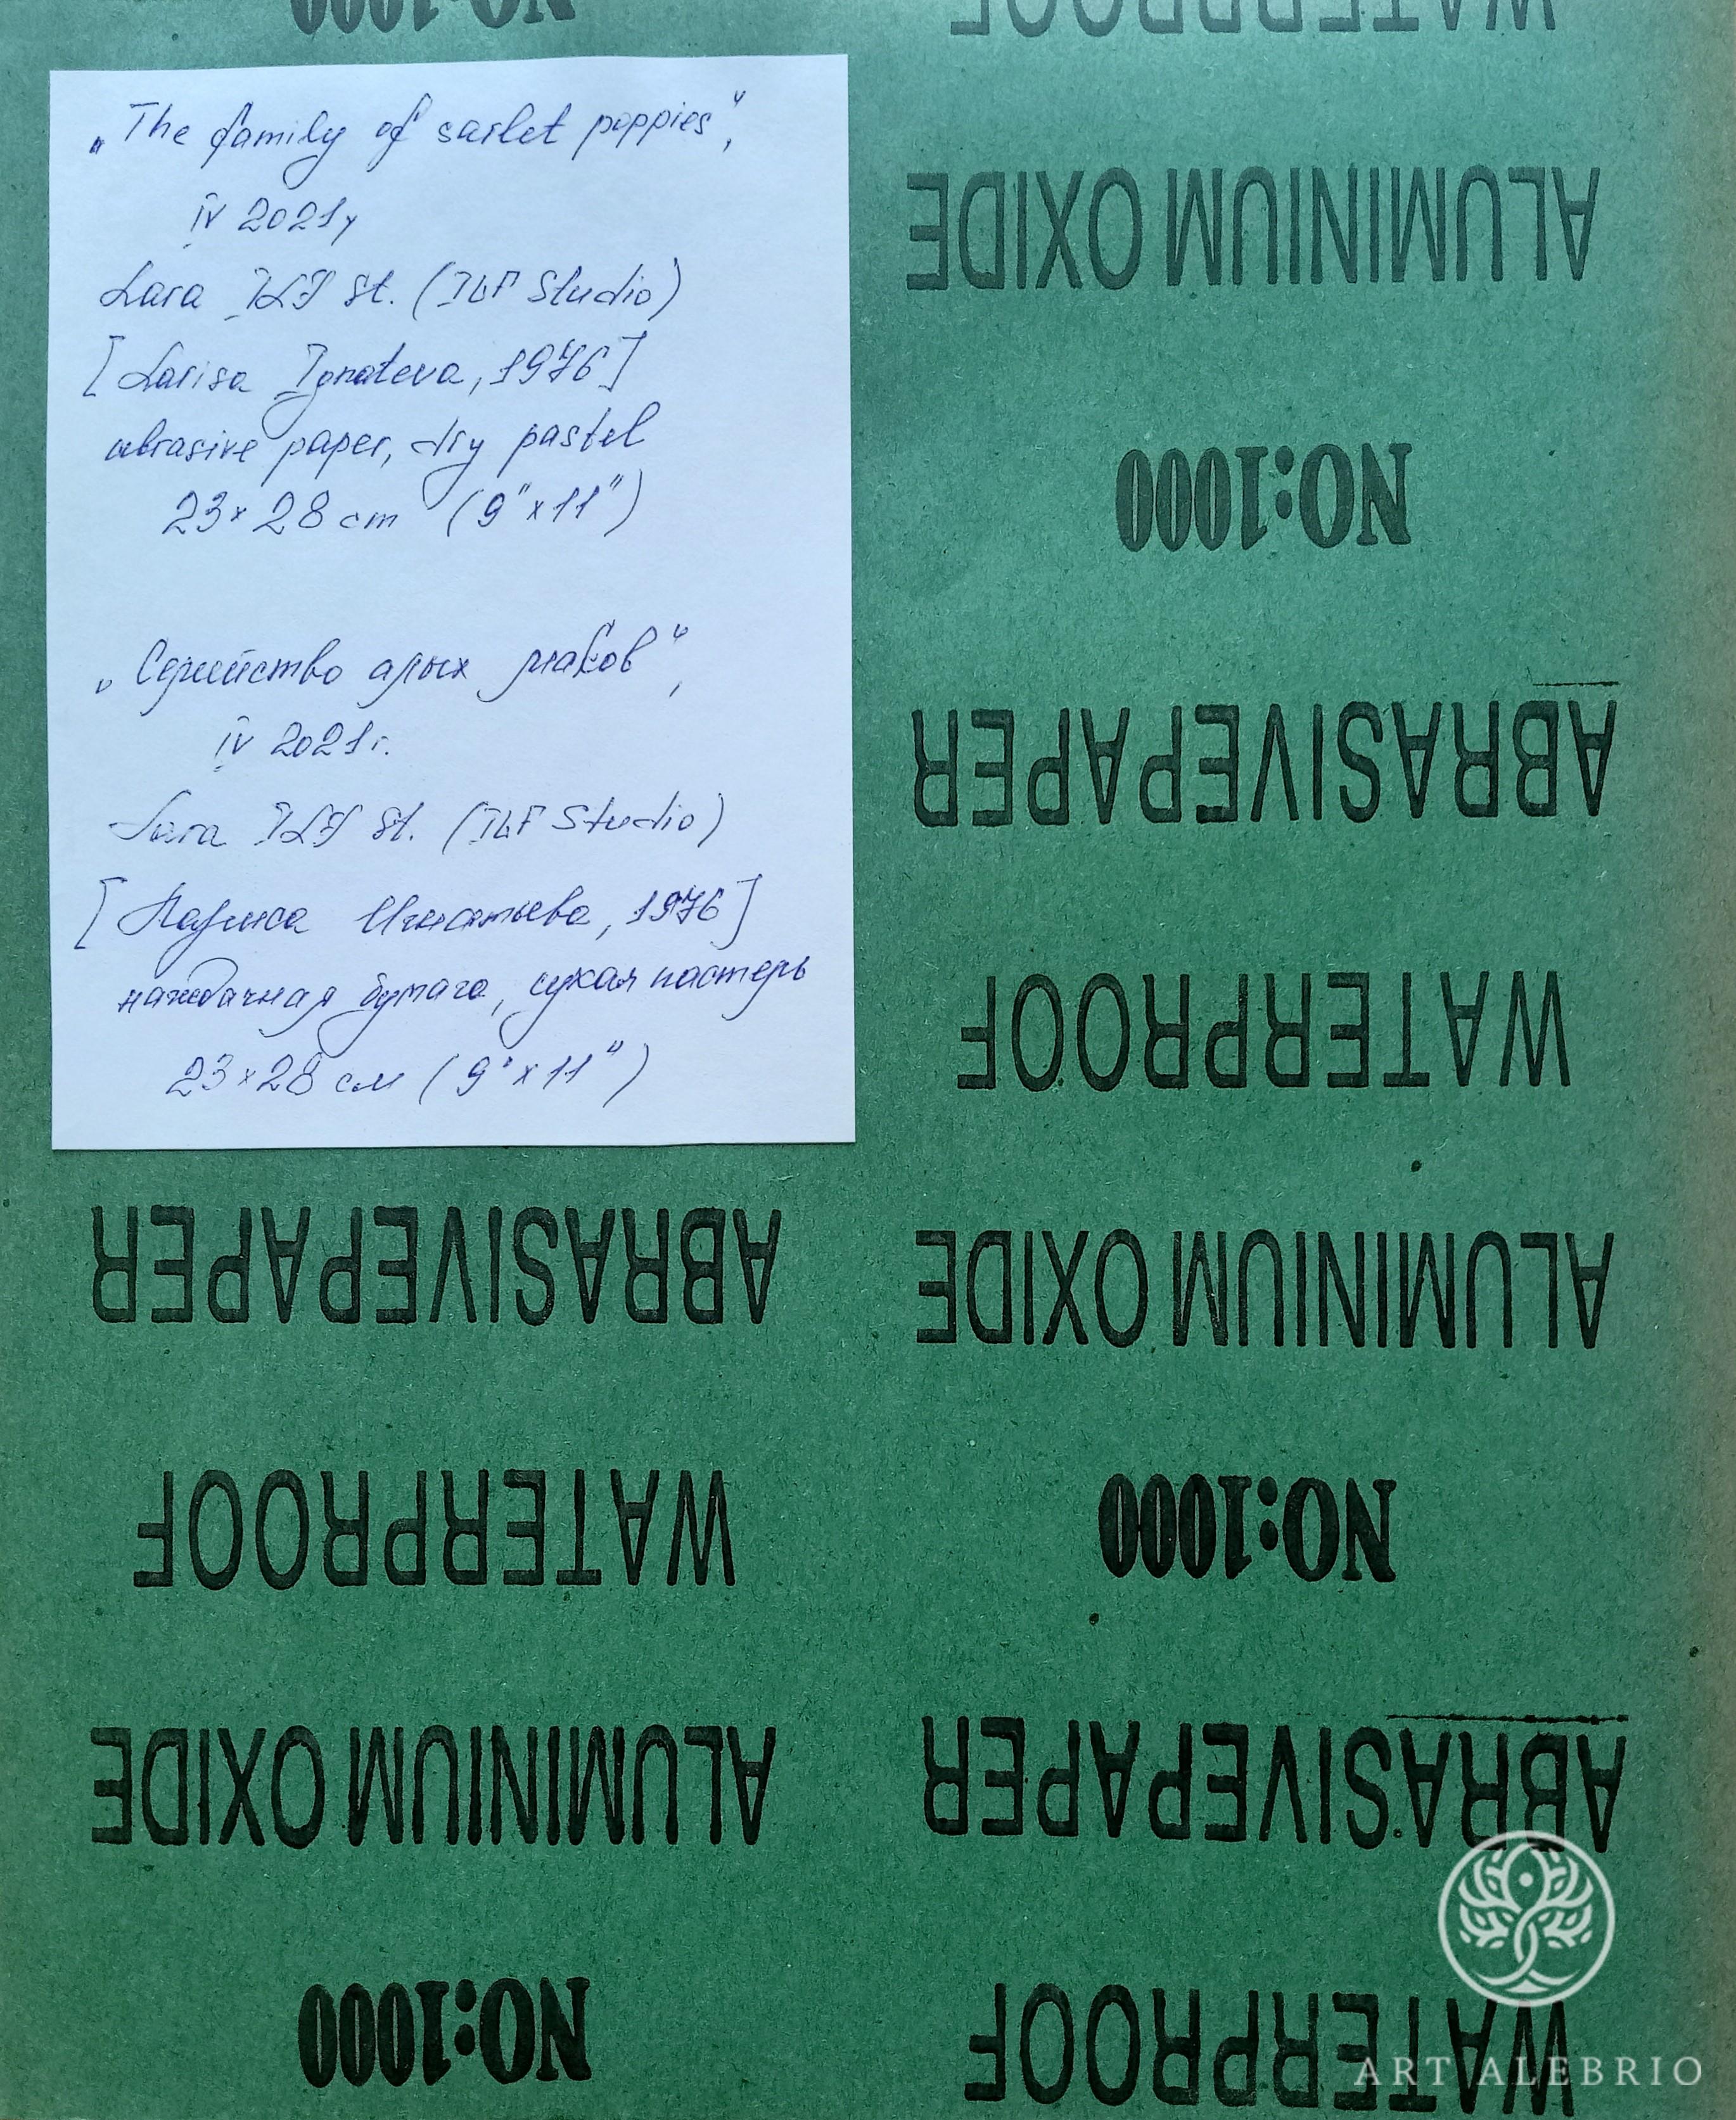 NO:1000
WATERPROOF
„The family of sarlet poppies“,
IV 2021y
Lara ILF St. (ILF Studio)
[Larisa Ignateva, 1976]
abrasive paper, dry pastel
23×28 cm (9"×11")
„Семейство алых маков“,
IV 2021г.
Lara ILF St. (ILF Studio)
[Лариса Игнатьева, 1976]
наждачная бумага, сухая пастель
23×28 см (9"×11")
ALUMINIUM OXIDE
NO:1000
ABRASIVEPAPER
WATERPROOF
ABRASIVEPAPER
ALUMINIUM OXIDE
WATERPROOF
NO:1000
ALUMINIUM OXIDE
ABRASIVEPAPER
NO:1000
WATERPROOF
ART ALEBRIO